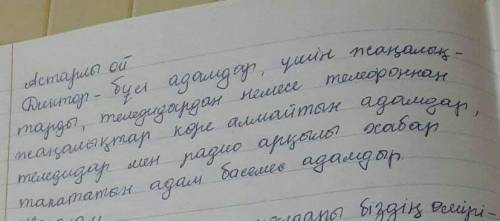 Астарлы ой
Диктор - бұл адамдар, үшін жаңалық-
тарды, теледидардан немесе телефоннан
жаңалықтар көре алмайтын адамдар,
теледидар мен радио арқылы хабар
тарататын адам басемес адамдыр.
біздің өмірі-